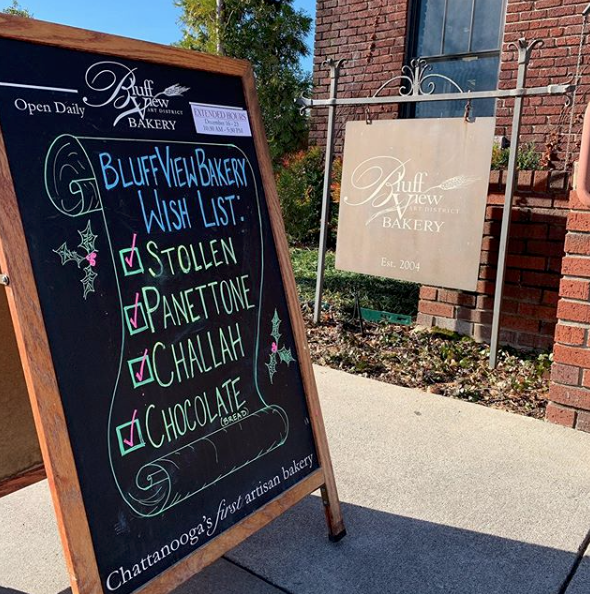 Open Daily
Bluff
View
ART DISTRICT
BAKERY
EXTENDED HOURS
10:00 AM - 5:00 PM
BLUFF VIEW BAKERY
WISH LIST:
STOLLEN
PANETTONE
CHALLAH
CHOCOLATE
(BREAD)
Chattanooga's first artisan bakery
Bluff
View
ART DISTRICT
BAKERY
Est. 2004